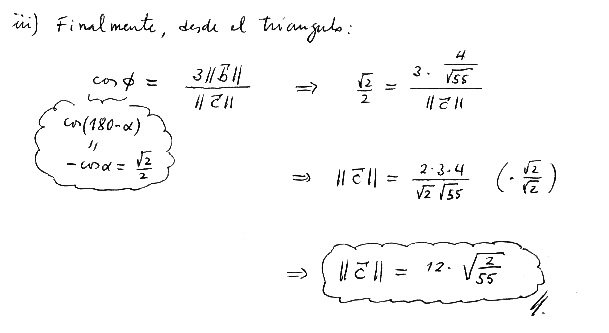 iii) Finalmente, desde el triangulo:
cos φ = 3||b⃗|| / ||c⃗|| ⇒ √2/2 = (3 · 4/√55) / ||c⃗||
cos(180-α)
"
-cos α = √2/2
⇒ ||c⃗|| = 2·3·4 / √2 √55 (· √2/√2)
⇒ ||c⃗|| = 12 · √(2/55)